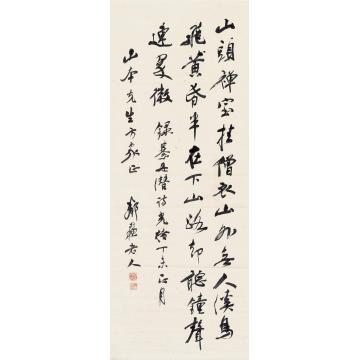 山頭禪室挂僧衣山外無人溪鳥
飛黃昏半在下山路却聽鐘聲
連翠微 錄綦毋潛詩光緒丁未正月
山本先生方家正
鄰蘇老人